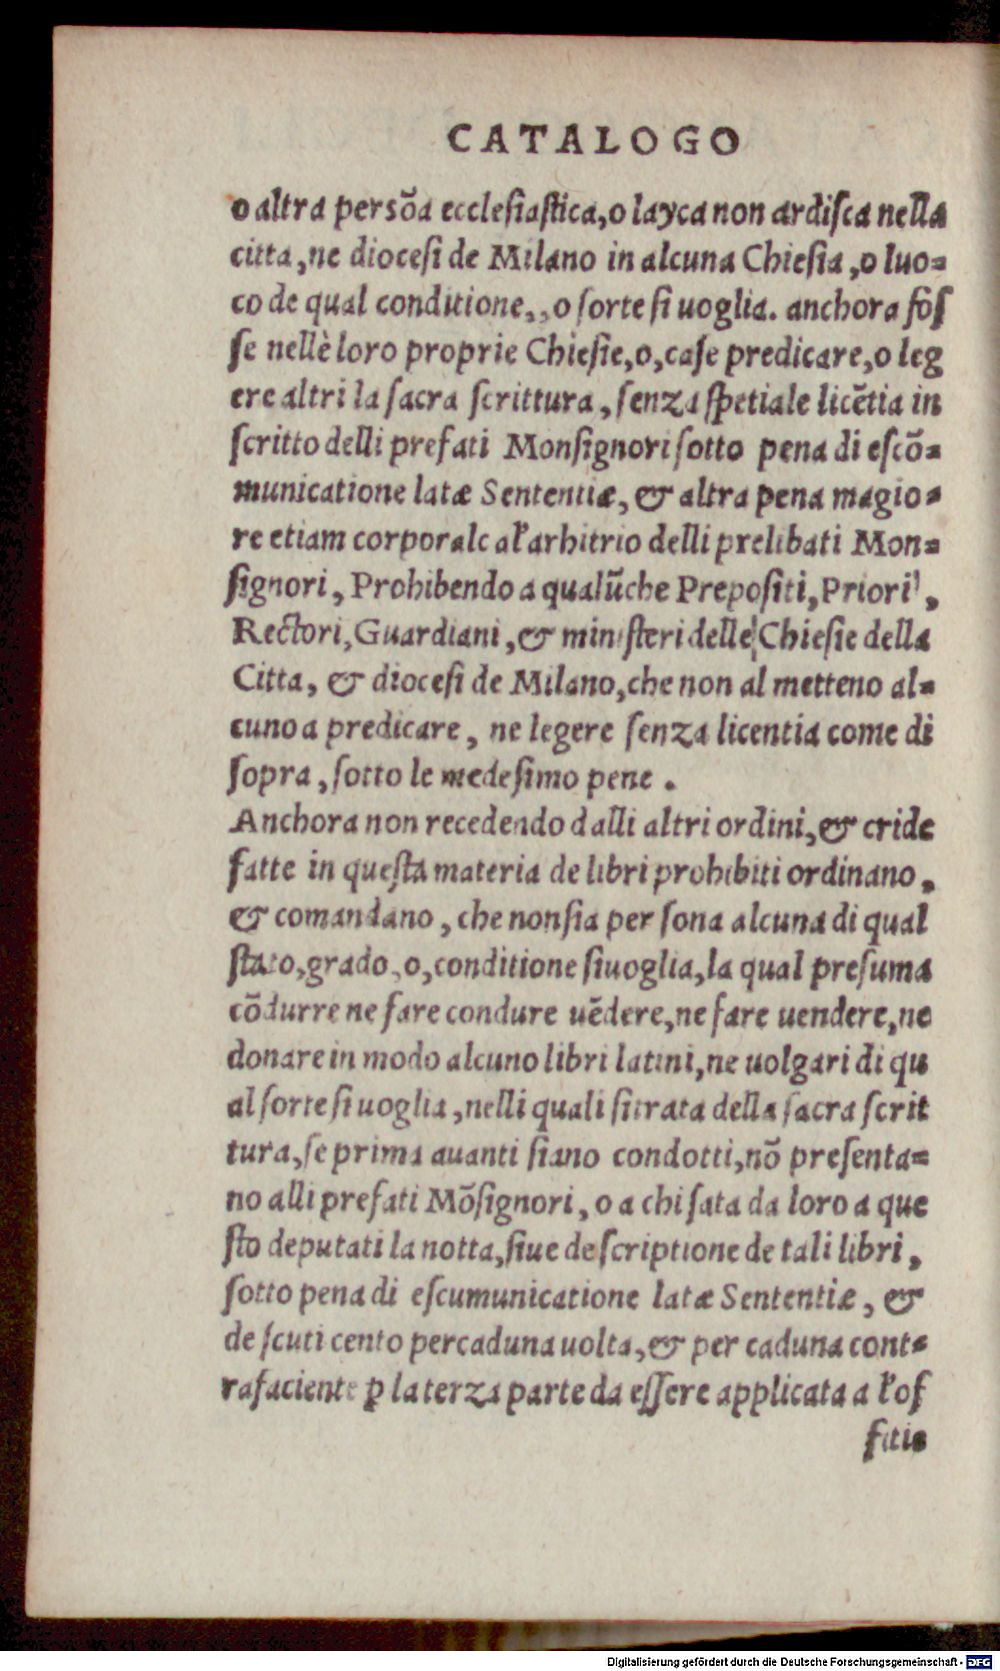 CATALOGO
o altra persõa ecclesiastica,o layca non ardisca nella
citta,ne diocesi de Milano in alcuna Chiesia,o luo=
co de qual conditione,,o sorte si uoglia. anchora fos
se nellè loro proprie Chiesie,o,case predicare,o leg
ere altri la sacra scrittura,senza spetiale licẽtia in
scritto delli prefati Monsignori sotto pena di escõ=
municatione latæ Sententiæ, & altra pena magio=
re etiam corporale al'arbitrio delli prelibati Mon=
signori, Prohibendo a qualũche Prepositi,Priori,
Rectori,Guardiani,& ministeri delle Chiesie della
Citta, & diocesi de Milano,che non al metteno al=
cuno a predicare, ne legere senza licentia come di
sopra,sotto le medesimo pene.
Anchora non recedendo dalli altri ordini,& cride
fatte in questa materia de libri prohibiti ordinano,
& comandano, che non sia persona alcuna di qual
stato,grado,o,conditione siuoglia,la qual presuma
cõdurre ne fare condure uẽdere,ne fare uendere,ne
donare in modo alcuno libri latini,ne uolgari di qu
al sorte si uoglia,nelli quali si trata della sacra scrit
tura,se prima auanti siano condotti,nõ presenta=
no alli prefati Mõsignori, o a chi sata da loro a que
sto deputati la notta,siue descriptione de tali libri,
sotto pena di escumunicatione latæ Sententiæ, &
de scuti cento percaduna uolta,& per caduna cont=
rafaciente ꝑ la terza parte da essere applicata a l'of
fitio
Digitalisierung gefördert durch die Deutsche Forschungsgemeinschaft - DFG